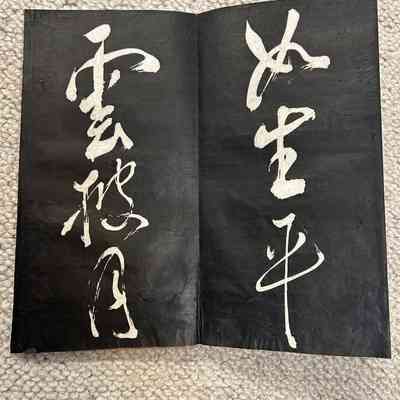 如生平
雲披月